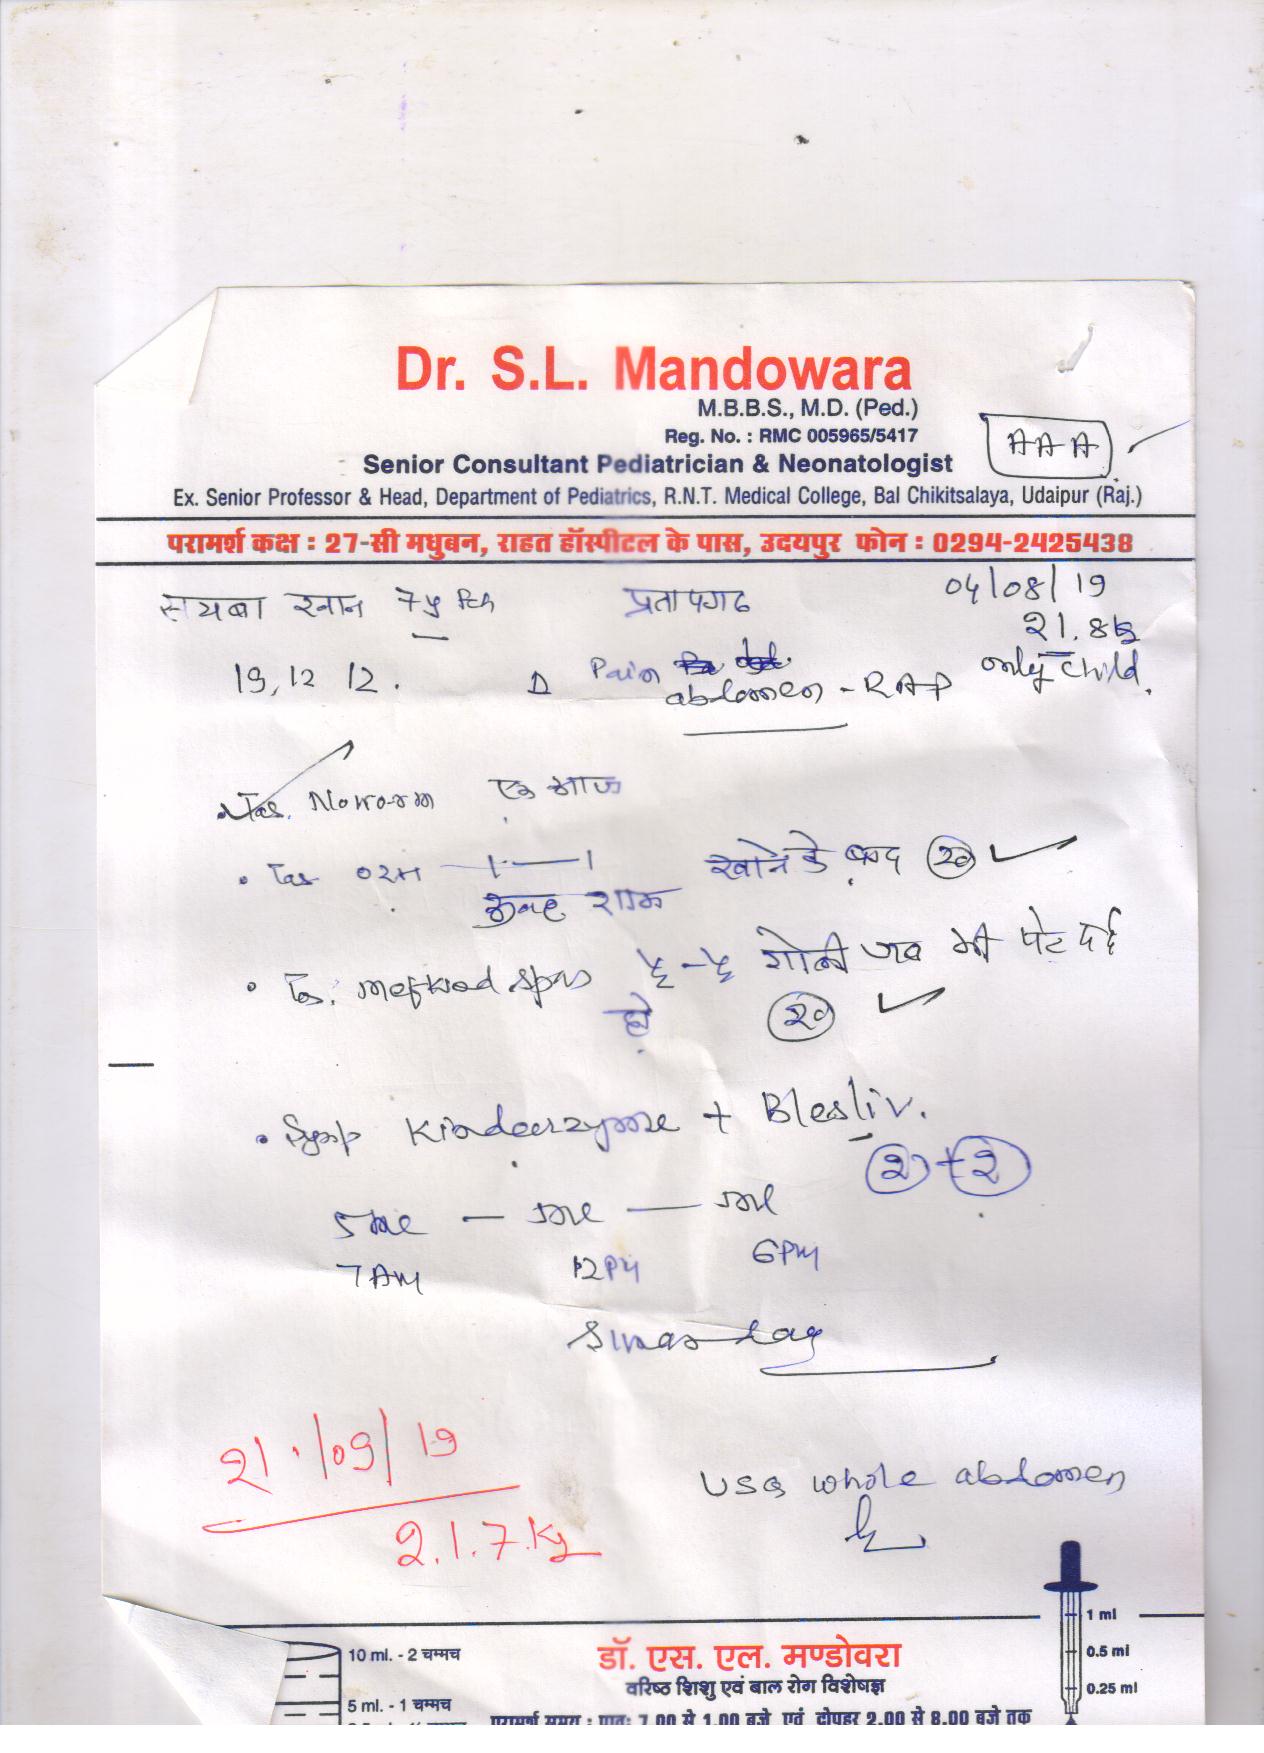 Dr. S.L. Mandowara
M.B.B.S., M.D. (Ped.)
Reg. No. : RMC 005965/5417
AAA
Senior Consultant Pediatrician & Neonatologist
Ex. Senior Professor & Head, Department of Pediatrics, R.N.T. Medical College, Bal Chikitsalaya, Udaipur (Raj.)
परामर्श कक्ष : 27-सी मधुबन, राहत हॉस्पीटल के पास, उदयपुर फोन : 0294-2425438
खान 7y प्रतापगढ 04/08/19
21.8kg
19,12 12. Pain abdomen - RAP only child.
एक आज
खाने के बाद २०
शाम
गोली जब भी पेट दर्द
हो २०
Syrup Kinderzyme + Blesliv.
2 + 2
5ml — ml — ml
7AM 12PM 6PM
21/09/19
USG whole abdomen
21.7 Kg
1 ml
10 ml. - 2 चम्मच
डॉ. एस. एल. मण्डोवरा
0.5 ml
वरिष्ठ शिशु एवं बाल रोग विशेषज्ञ
0.25 ml
5 ml. - 1 चम्मच
परामर्श समय : प्रातः 7.00 से 1.00 बजे एवं दोपहर 2.00 से 8.00 बजे तक